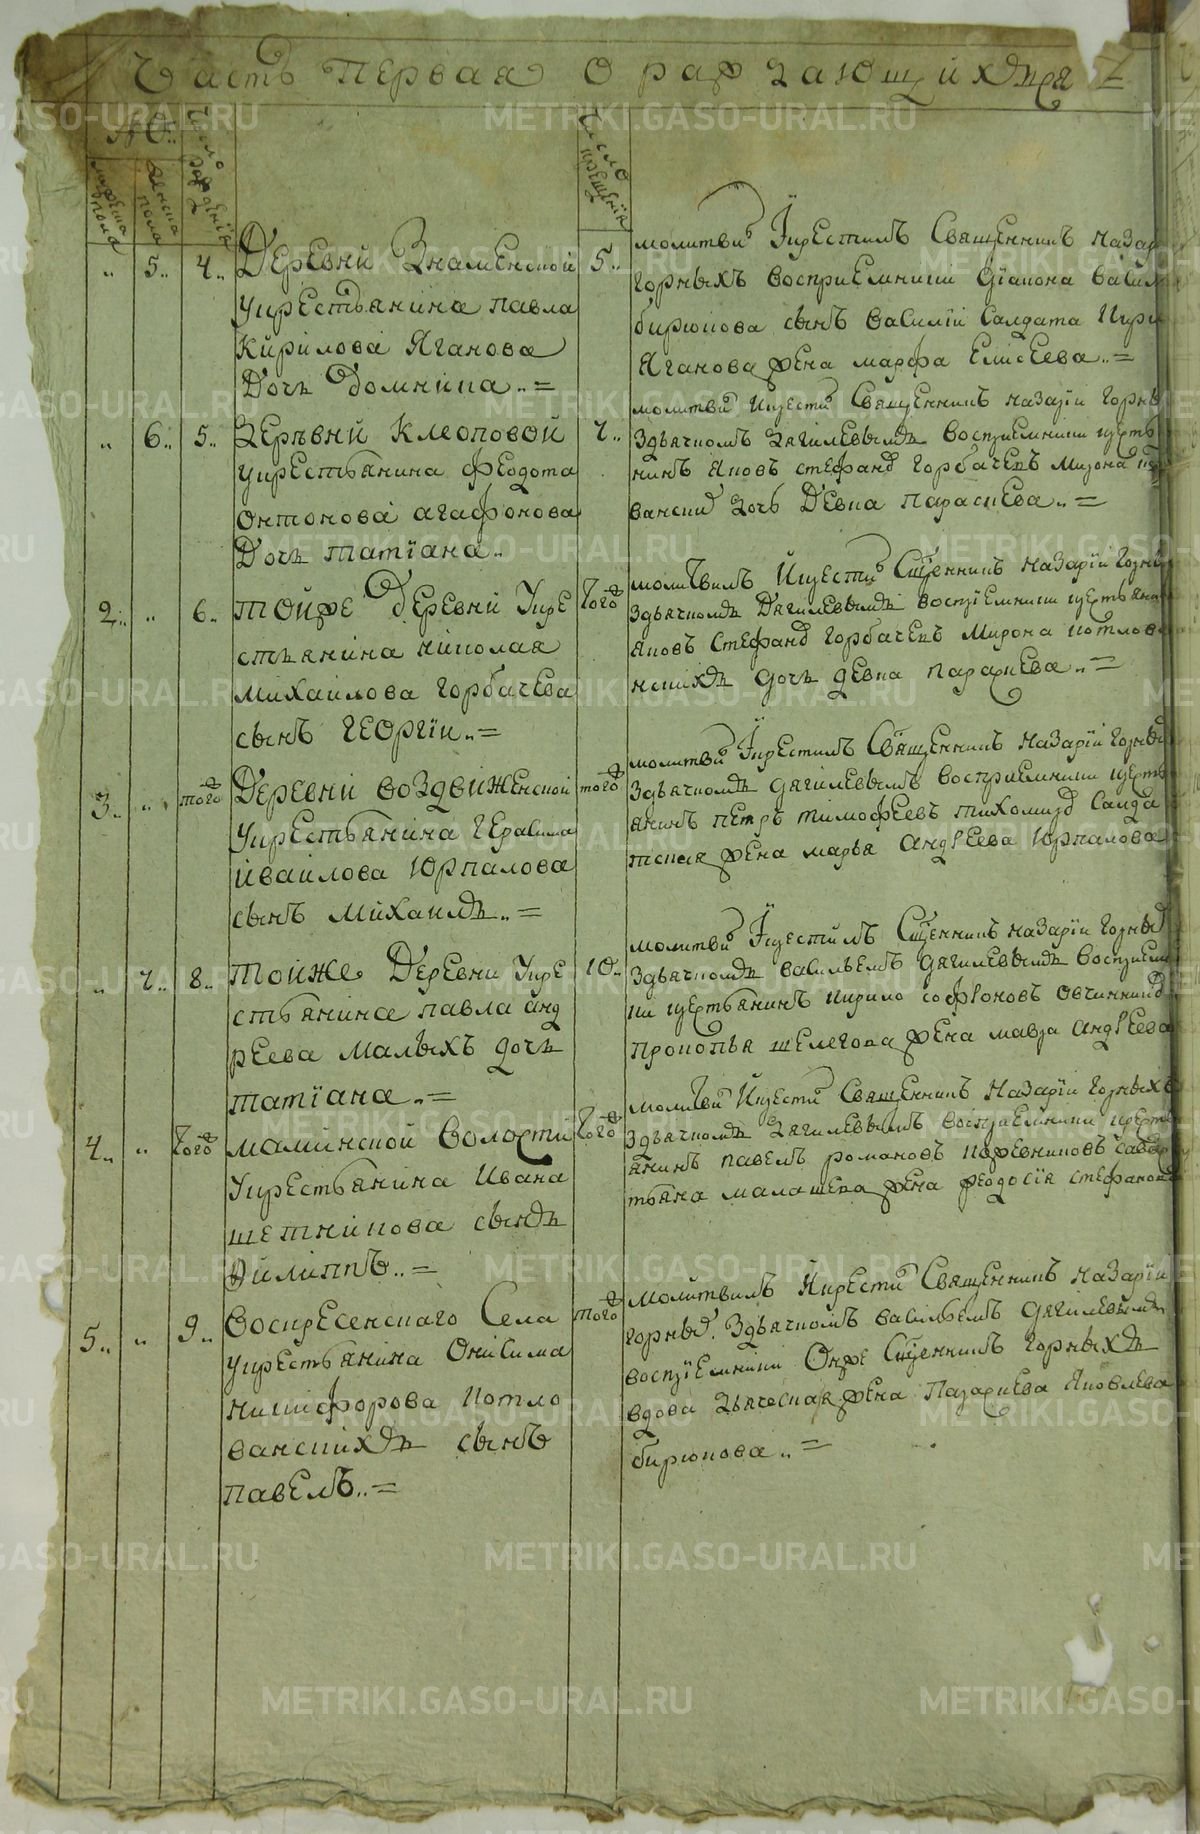 Часть первая о раждающихся
№
мужеска пола
женска пола
число рождения
число крещения
„ 5.. 4..
Деревни Знаменской
у крестьянина павла
Кирилова Яганова
Дочь Домника..=
5..
молитви и крестилъ Священникъ Назар
горныхъ восприемники дiакона васил
бирюкова сынъ василiй Салдата
Яганова жена марфа Елисеева..=
„ 6.. 5..
деревни Клеоповой
у крестьянина феодота
онтонова агафонова
Дочь татiана..
7..
молитви и крести Священникъ назарiи горны
здьячкомъ дягилевымъ восприемники крестья
нинъ яковъ стефанд горбачевъ Мирона
ванских дочь Девка параскева..=
2.. „ 6..
тойже деревни у кре
стьянина николая
михаилова горбачева
сынъ георгiи..=
того
молитвилъ и крести Сщенникъ назарiи горны
здьячкомъ Дягилевымъ восприемники крестьяни
яковъ Стефанд горбачевъ Мирона котлова
нскихъ дочь девка параскева..=
3.. „ того
Деревни воздвиженской
у крестьянина герасима
иваилова Юрпалова
сынъ михаилъ..=
того
молитви и крестилъ Священникъ назарiи горны
здьячкомъ дягилевымъ восприемники крестья
янинъ петръ тимофеевъ тихомир Салда
тская жена марья андреева Юрпалова
„ 7.. 8..
тойже Деревни у кре
стьянина павла анд
реева малыхъ дочь
татiана..=
10..
молитви и крестилъ Сщенникъ назарiи горны
здьячкомъ васильемъ дягилевымъ восприемни
ки крестьянинъ кирило софроновъ овчинник
прокопья шелегова жена мавра андреева
4.. „ того
маминской волости
у крестьянина Ивана
щетникова сынъ
Филиппъ..=
того
молитви и крести Священникъ назарiи горныхъ
здьячкомъ дягилевымъ восприемники крестья
янинъ павелъ романовъ кожевниковъ
тьяна малашева жена феодосiя стефанова
5.. „ 9..
воскресенскаго Села
у крестьянина Онисима
никифорова котло
ванскихъ сынъ
павелъ..=
того
молитвилъ и крести Священникъ назарiи
горных. здьячкомъ васильемъ дягилевымъ
восприемники Онже Сщенникъ горныхъ
вдова дьяческая жена Параскева яковлева
бирюкова..=